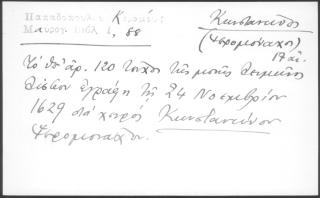 Παπαδοπούλου Κεραμέως
Μαυρογ. Βιβλ. Ι, 88
Κωνσταντῖνος
(Ἱερομόναχος)
17 αἰ.
Τό ὑπ' ἀρ. 120 τῆς μονῆς Λειμῶνος
ἐγράφη τῇ 24 Νοεμβρίου
1629 διά χειρός Κωνσταντίνου
Ἱερομονάχου.